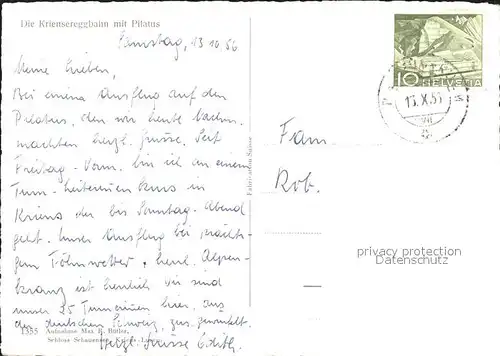 Die Kriensereggbahn mit Pilatus
Samstag, 13 10 56
Meine Lieben,
Bei einem Ausflug auf den
Pilatus, den wir heute nachm.
machten herzl. Grüsse. Seit
Freitag-Vorm. bin ich an einem
Turn-Leiterinnen Kurs in
Kriens der bis Sonntag-Abend
geht. Unser Ausflug bei prächti-
gem Föhnwetter, herrl. Alpen-
kranz ist herrlich wir sind
unser 25 Turnerinnen hier, aus
der deutschen Schweiz, zus. gewürfelt.
Herzl. Grüsse Edith.
1355 Aufnahme Max R.
Schloss Schauensee, Kriens
Fabrication Suisse
10 HELVETIA
13.X.56
Fam
Rob.
privacy protection
Datenschutz